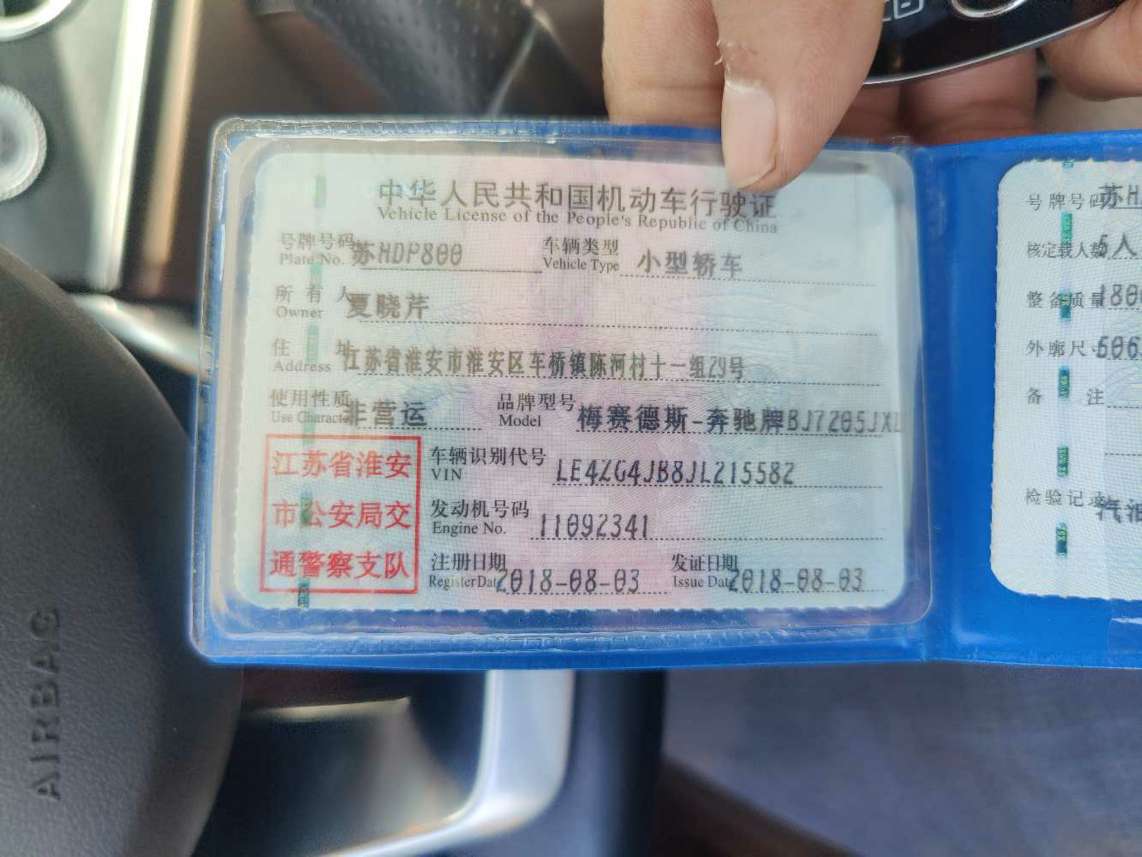 中华人民共和国机动车行驶证
Vehicle License of the People's Republic of China
号牌号码 苏HDP800 车辆类型 小型轿车
Plate No. Vehicle Type
所有人 夏晓芹
Owner
住址 江苏省淮安市淮安区车桥镇陈河村十一组29号
Address
使用性质 非营运 品牌型号 梅赛德斯-奔驰牌BJ7205JXL
Use Character Model
江苏省淮安
市公安局交
通警察支队
车辆识别代号 LE4ZG4JB8JL215582
VIN
发动机号码 11092341
Engine No.
注册日期 2018-08-03 发证日期 2018-08-03
Register Date Issue Date
号牌号码 苏H
核定载人数 5人
整备质量 180
外廓尺 506
备注
检验记录 汽油
AIRBAG